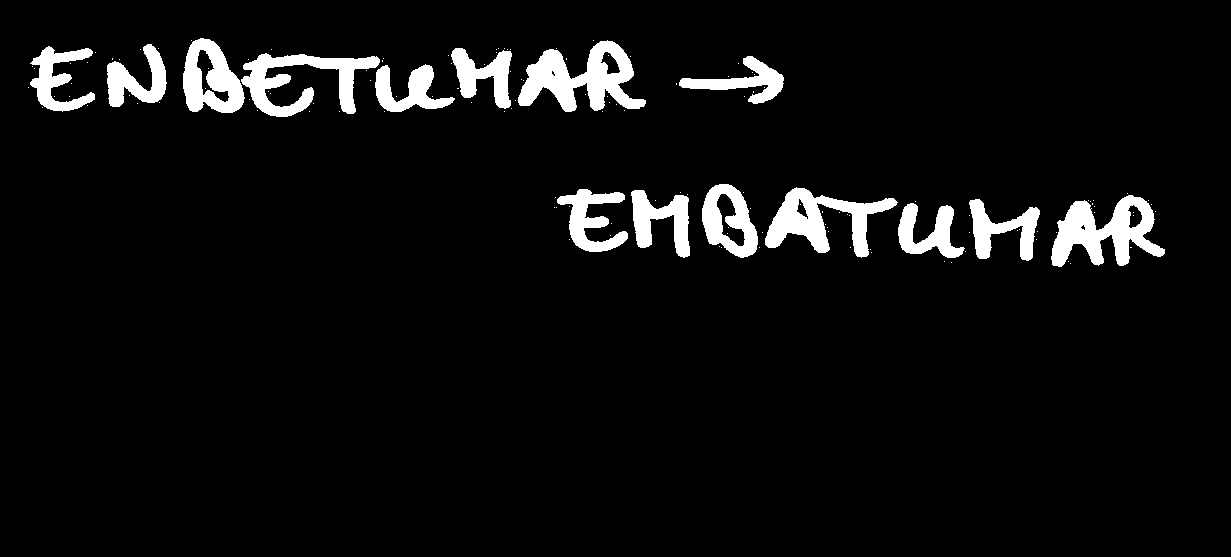 ENBETUMAR →
EMBATUMAR